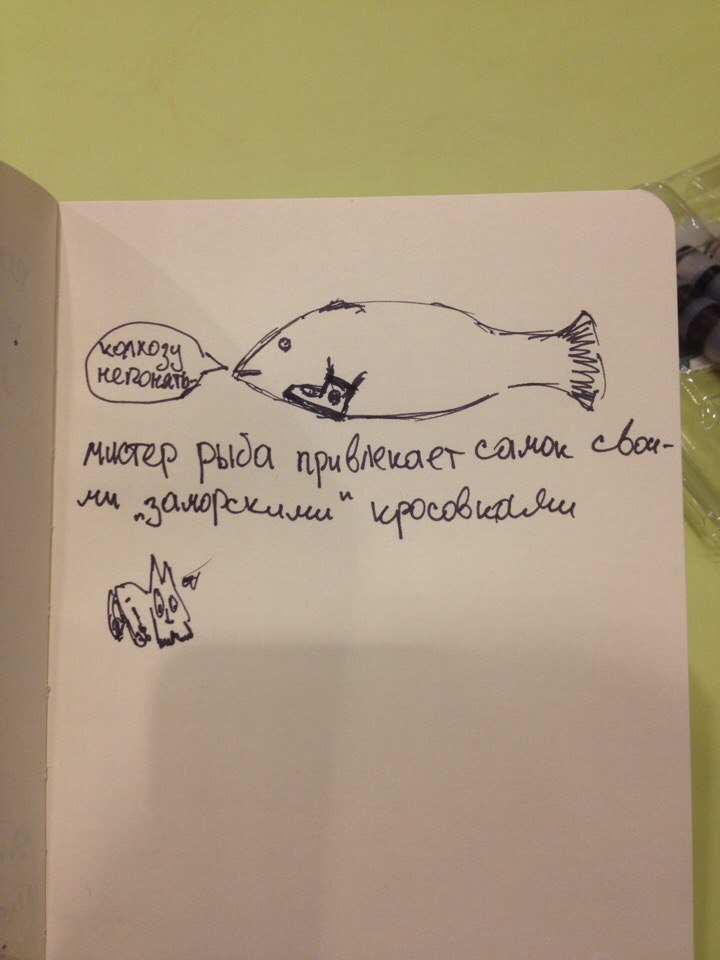 колхозу
непонять
мистер рыба привлекает самок свои-
ми „заморскими" кросовками